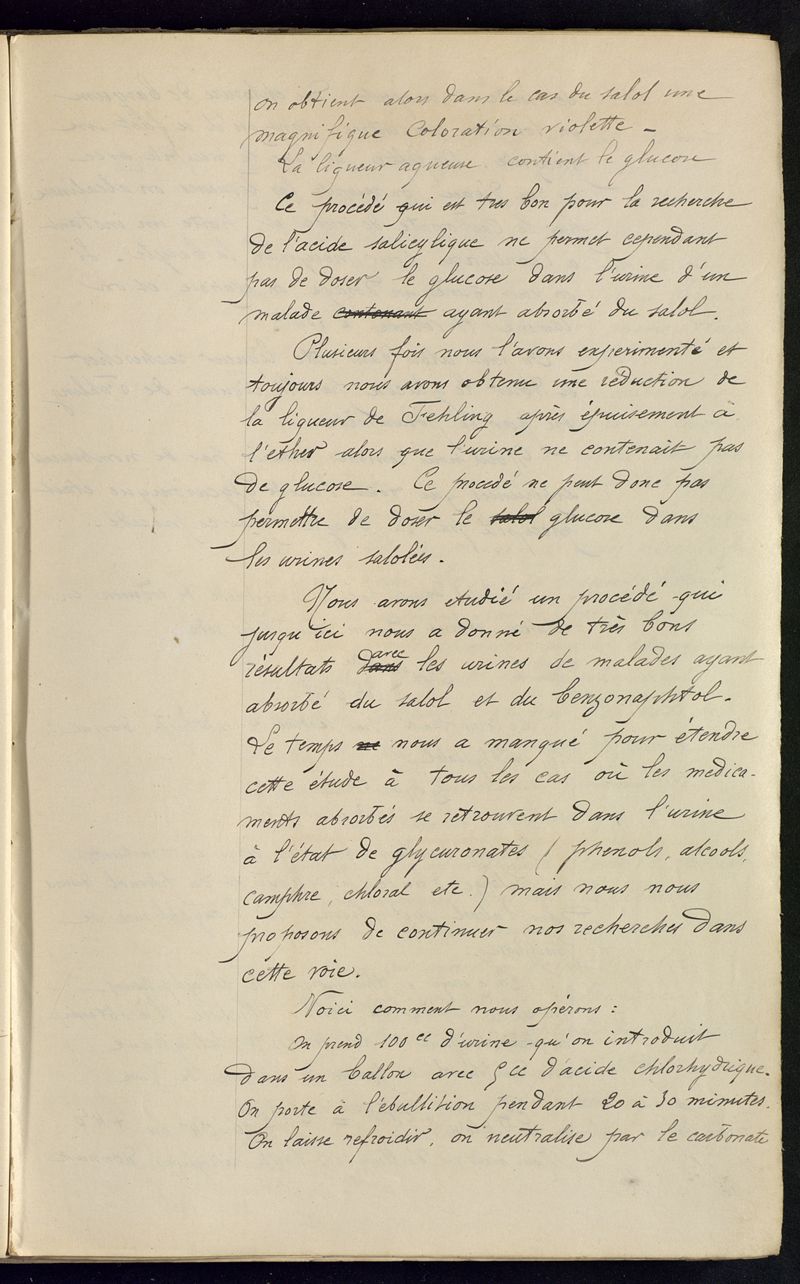 on obtient alors dans le cas du salol une
magnifique coloration violette -
La liqueur aqueuse contient le glucose
Ce procédé qui est tres bon pour la recherche
de l'acide salicylique ne permet cependant
pas de doser le glucose dans l'urine d'un
malade contenant ayant absorbé du salol.
Plusieurs fois nous l'avons experimenté et
toujours nous avons obtenu une réduction de
la liqueur de Fehling après épuisement à
l'ether alors que l'urine ne contenait pas
de glucose. Ce procédé ne peut donc pas
permettre de doser le salol glucose dans
les urines salolées.
Nous avons etudié un procédé qui
jusqu'ici nous a donné de très bons
résultats dans avec les urines de malades ayant
absorbé du salol et du benzonaphtol.
Le temps ne nous a manqué pour étendre
cette étude à tous les cas où les medica-
ments absorbés se retrouvent dans l'urine
à l'état de glycuronates (phenols, alcools,
camphre, chloral etc.) mais nous nous
proposons de continuer nos recherches dans
cette voie.
Voici comment nous opérons :
On prend 100 cc d'urine qu'on introduit
dans un ballon avec 5 cc d'acide chlorhydrique.
On porte à l'ébullition pendant 20 à 30 minutes.
On laisse refroidir, on neutralise par le carbonate